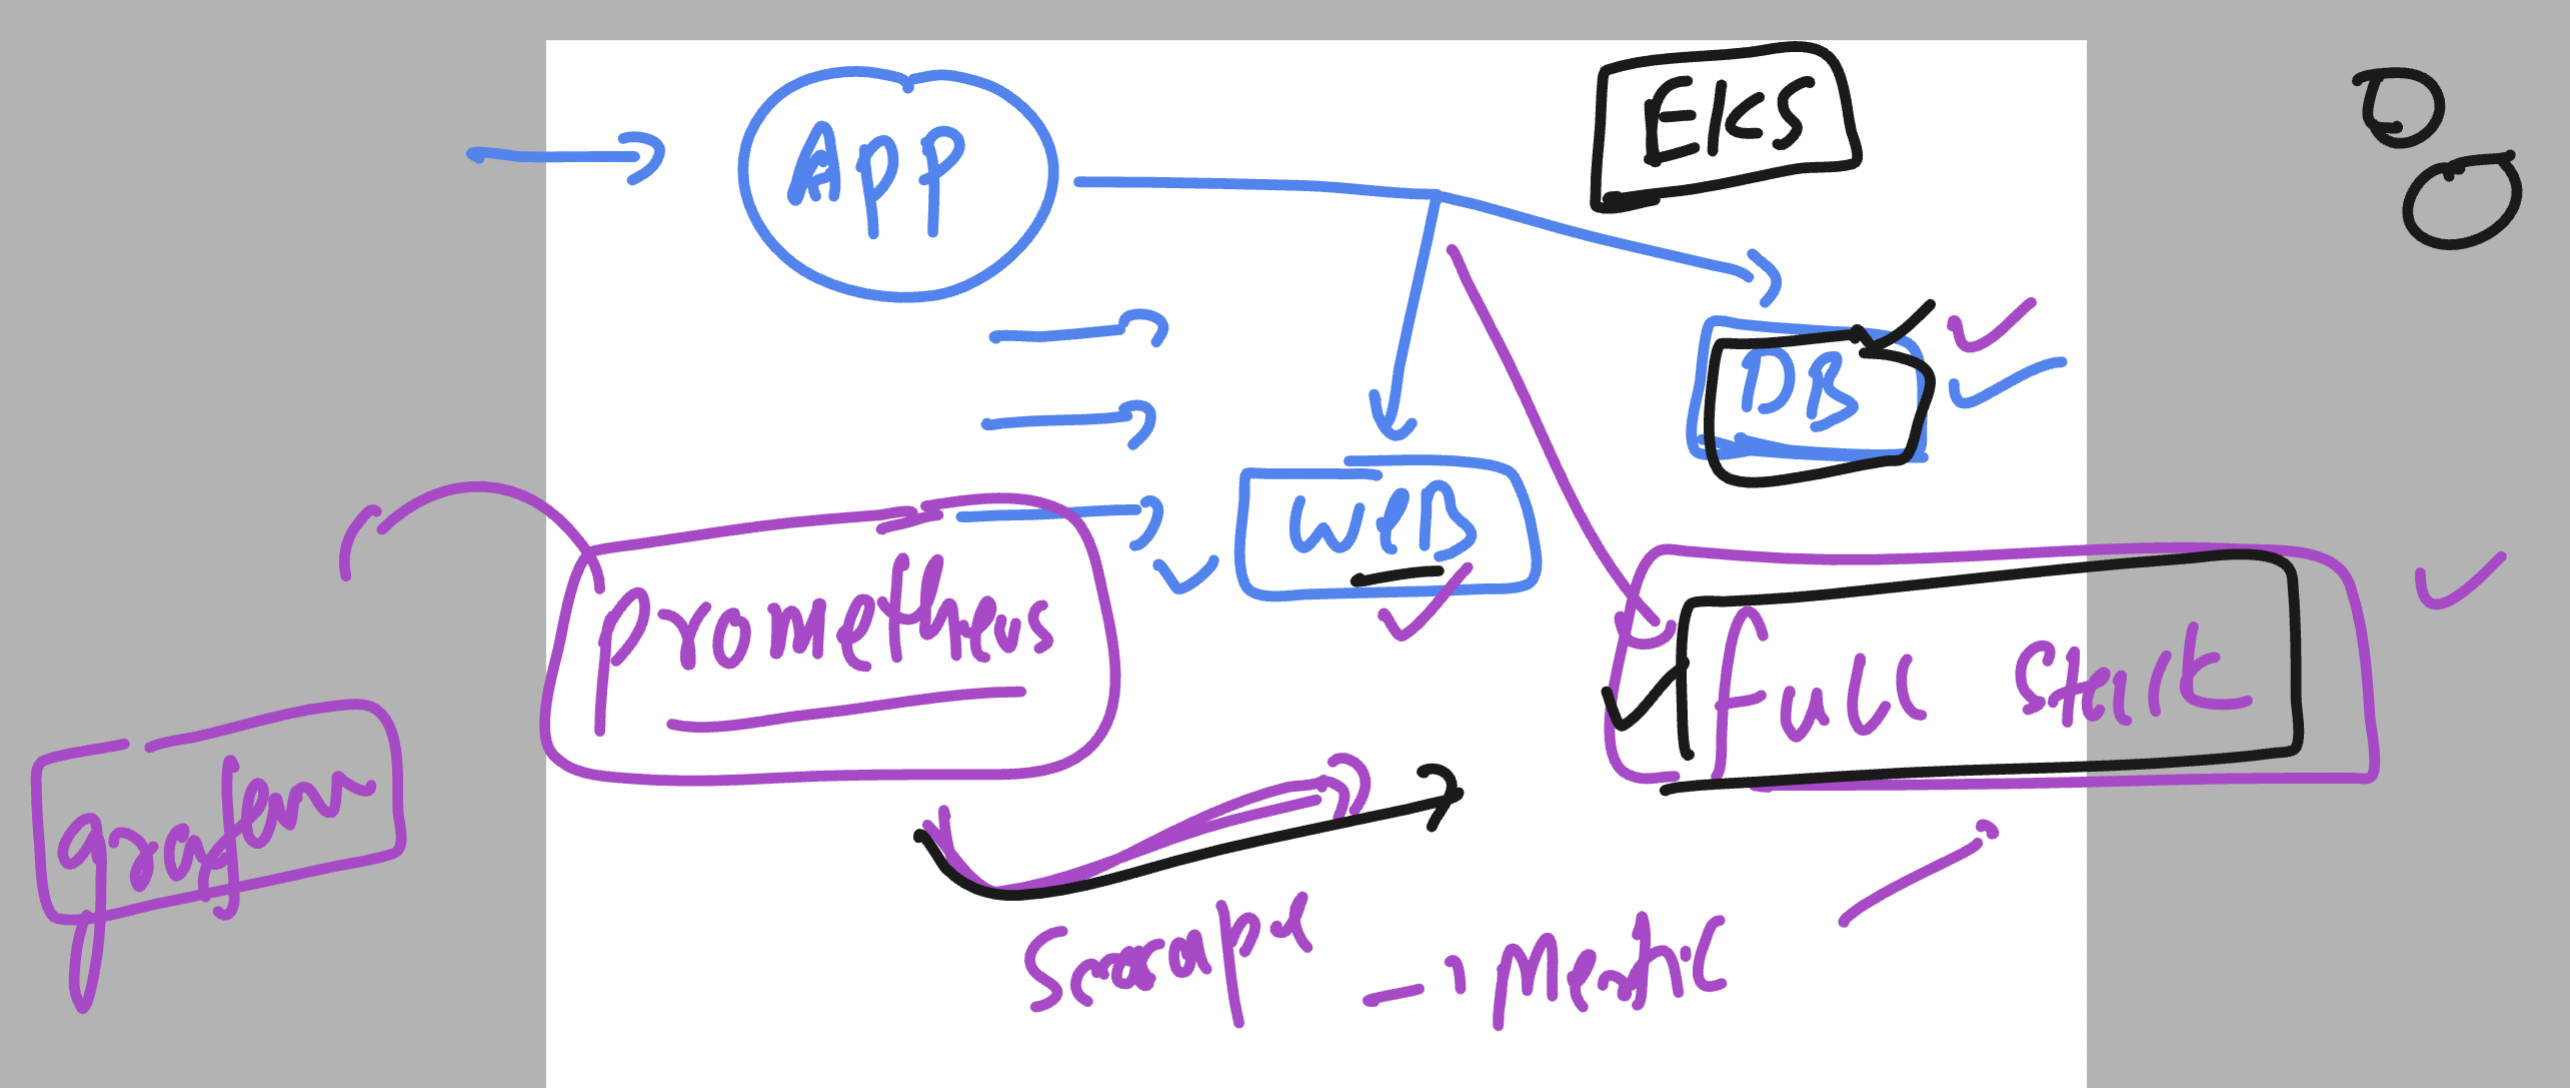 EKS
App
DB
WEB
Prometheus
Full Stack
grafana
Scrape
Metric